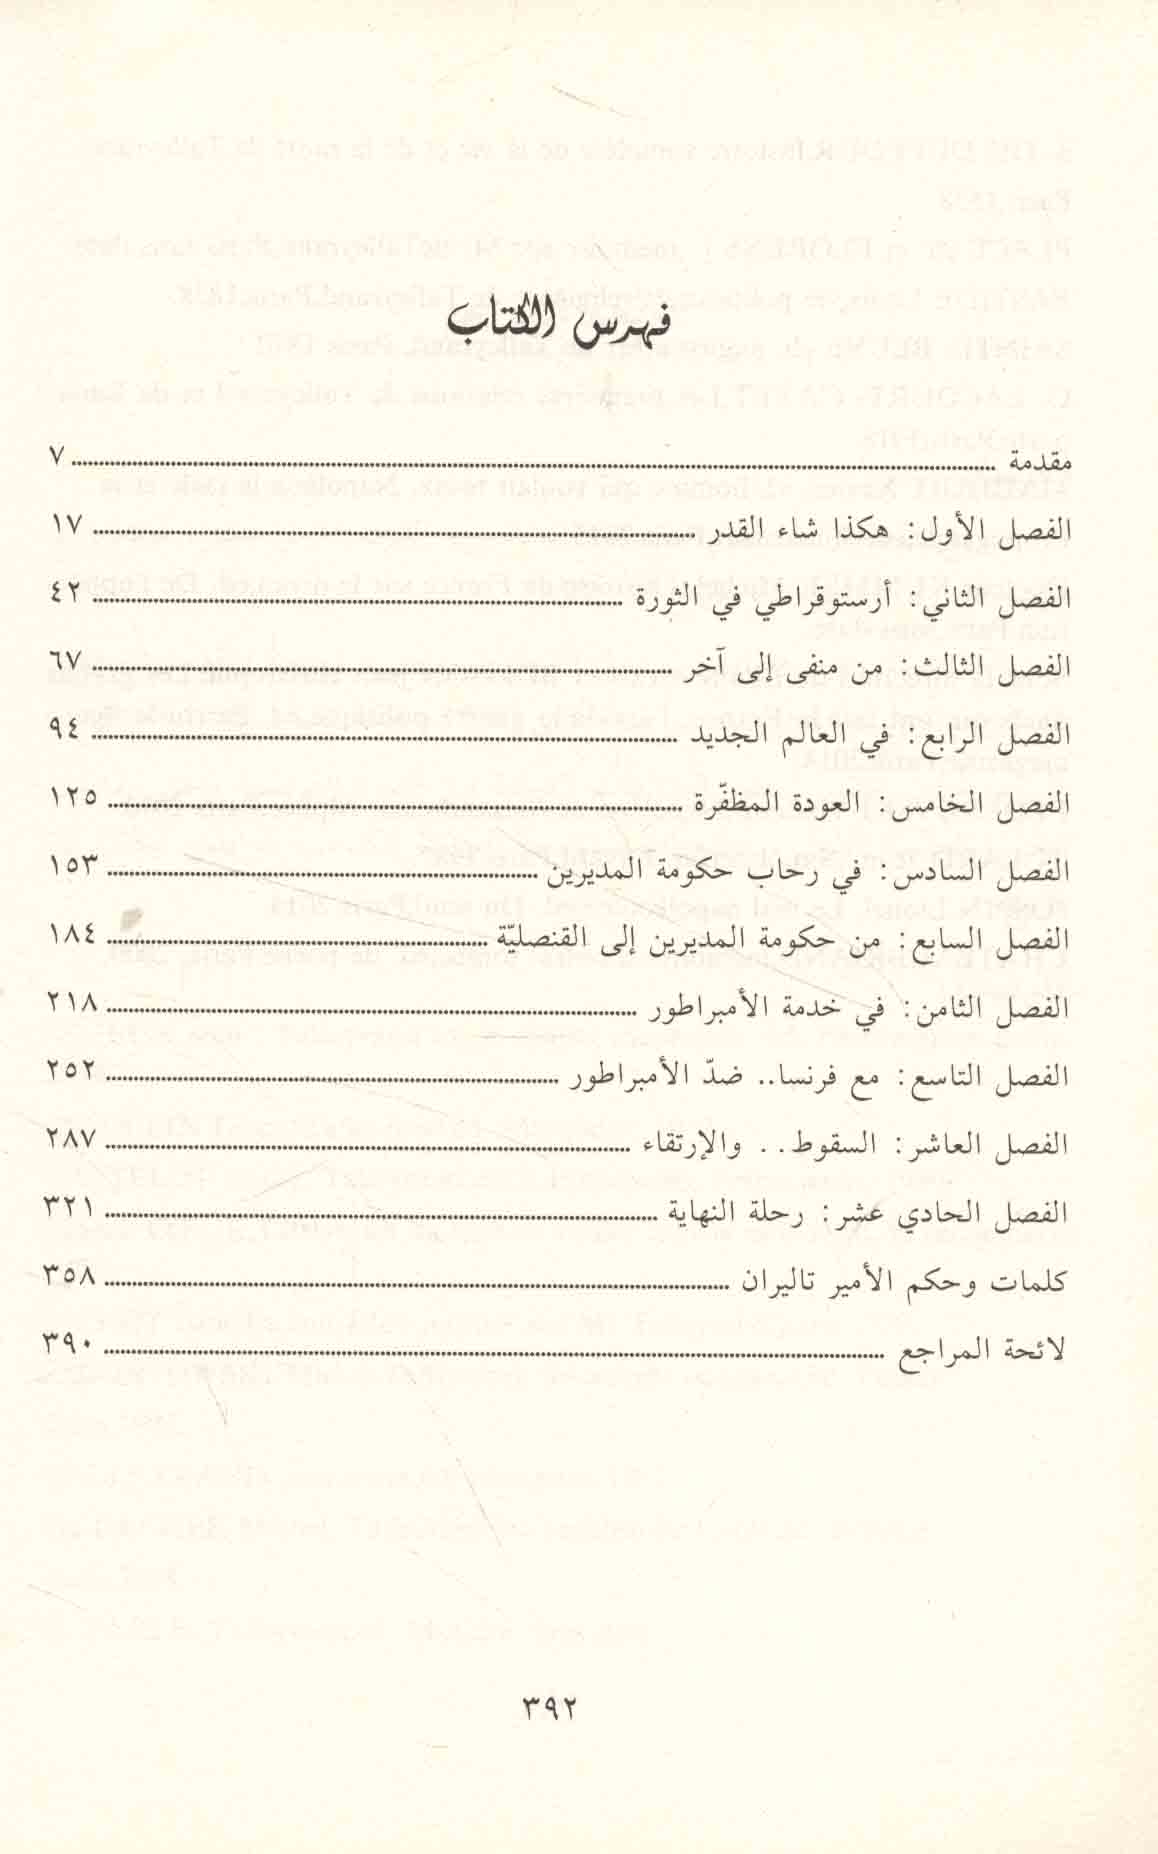 فهرس الكتاب
مقدمة ٧
الفصل الأول: هكذا شاء القدر ١٧
الفصل الثاني: أرستوقراطي في الثورة ٤٢
الفصل الثالث: من منفى إلى آخر ٦٧
الفصل الرابع: في العالم الجديد ٩٤
الفصل الخامس: العودة المظفّرة ١٢٥
الفصل السادس: في رحاب حكومة المديرين ١٥٣
الفصل السابع: من حكومة المديرين إلى القنصليّة ١٨٤
الفصل الثامن: في خدمة الأمبراطور ٢١٨
الفصل التاسع: مع فرنسا.. ضدّ الأمبراطور ٢٥٢
الفصل العاشر: السقوط.. والإرتقاء ٢٨٧
الفصل الحادي عشر: رحلة النهاية ٣٢١
كلمات وحكم الأمير تاليران ٣٥٨
لائحة المراجع ٣٩٠
٣٩٢